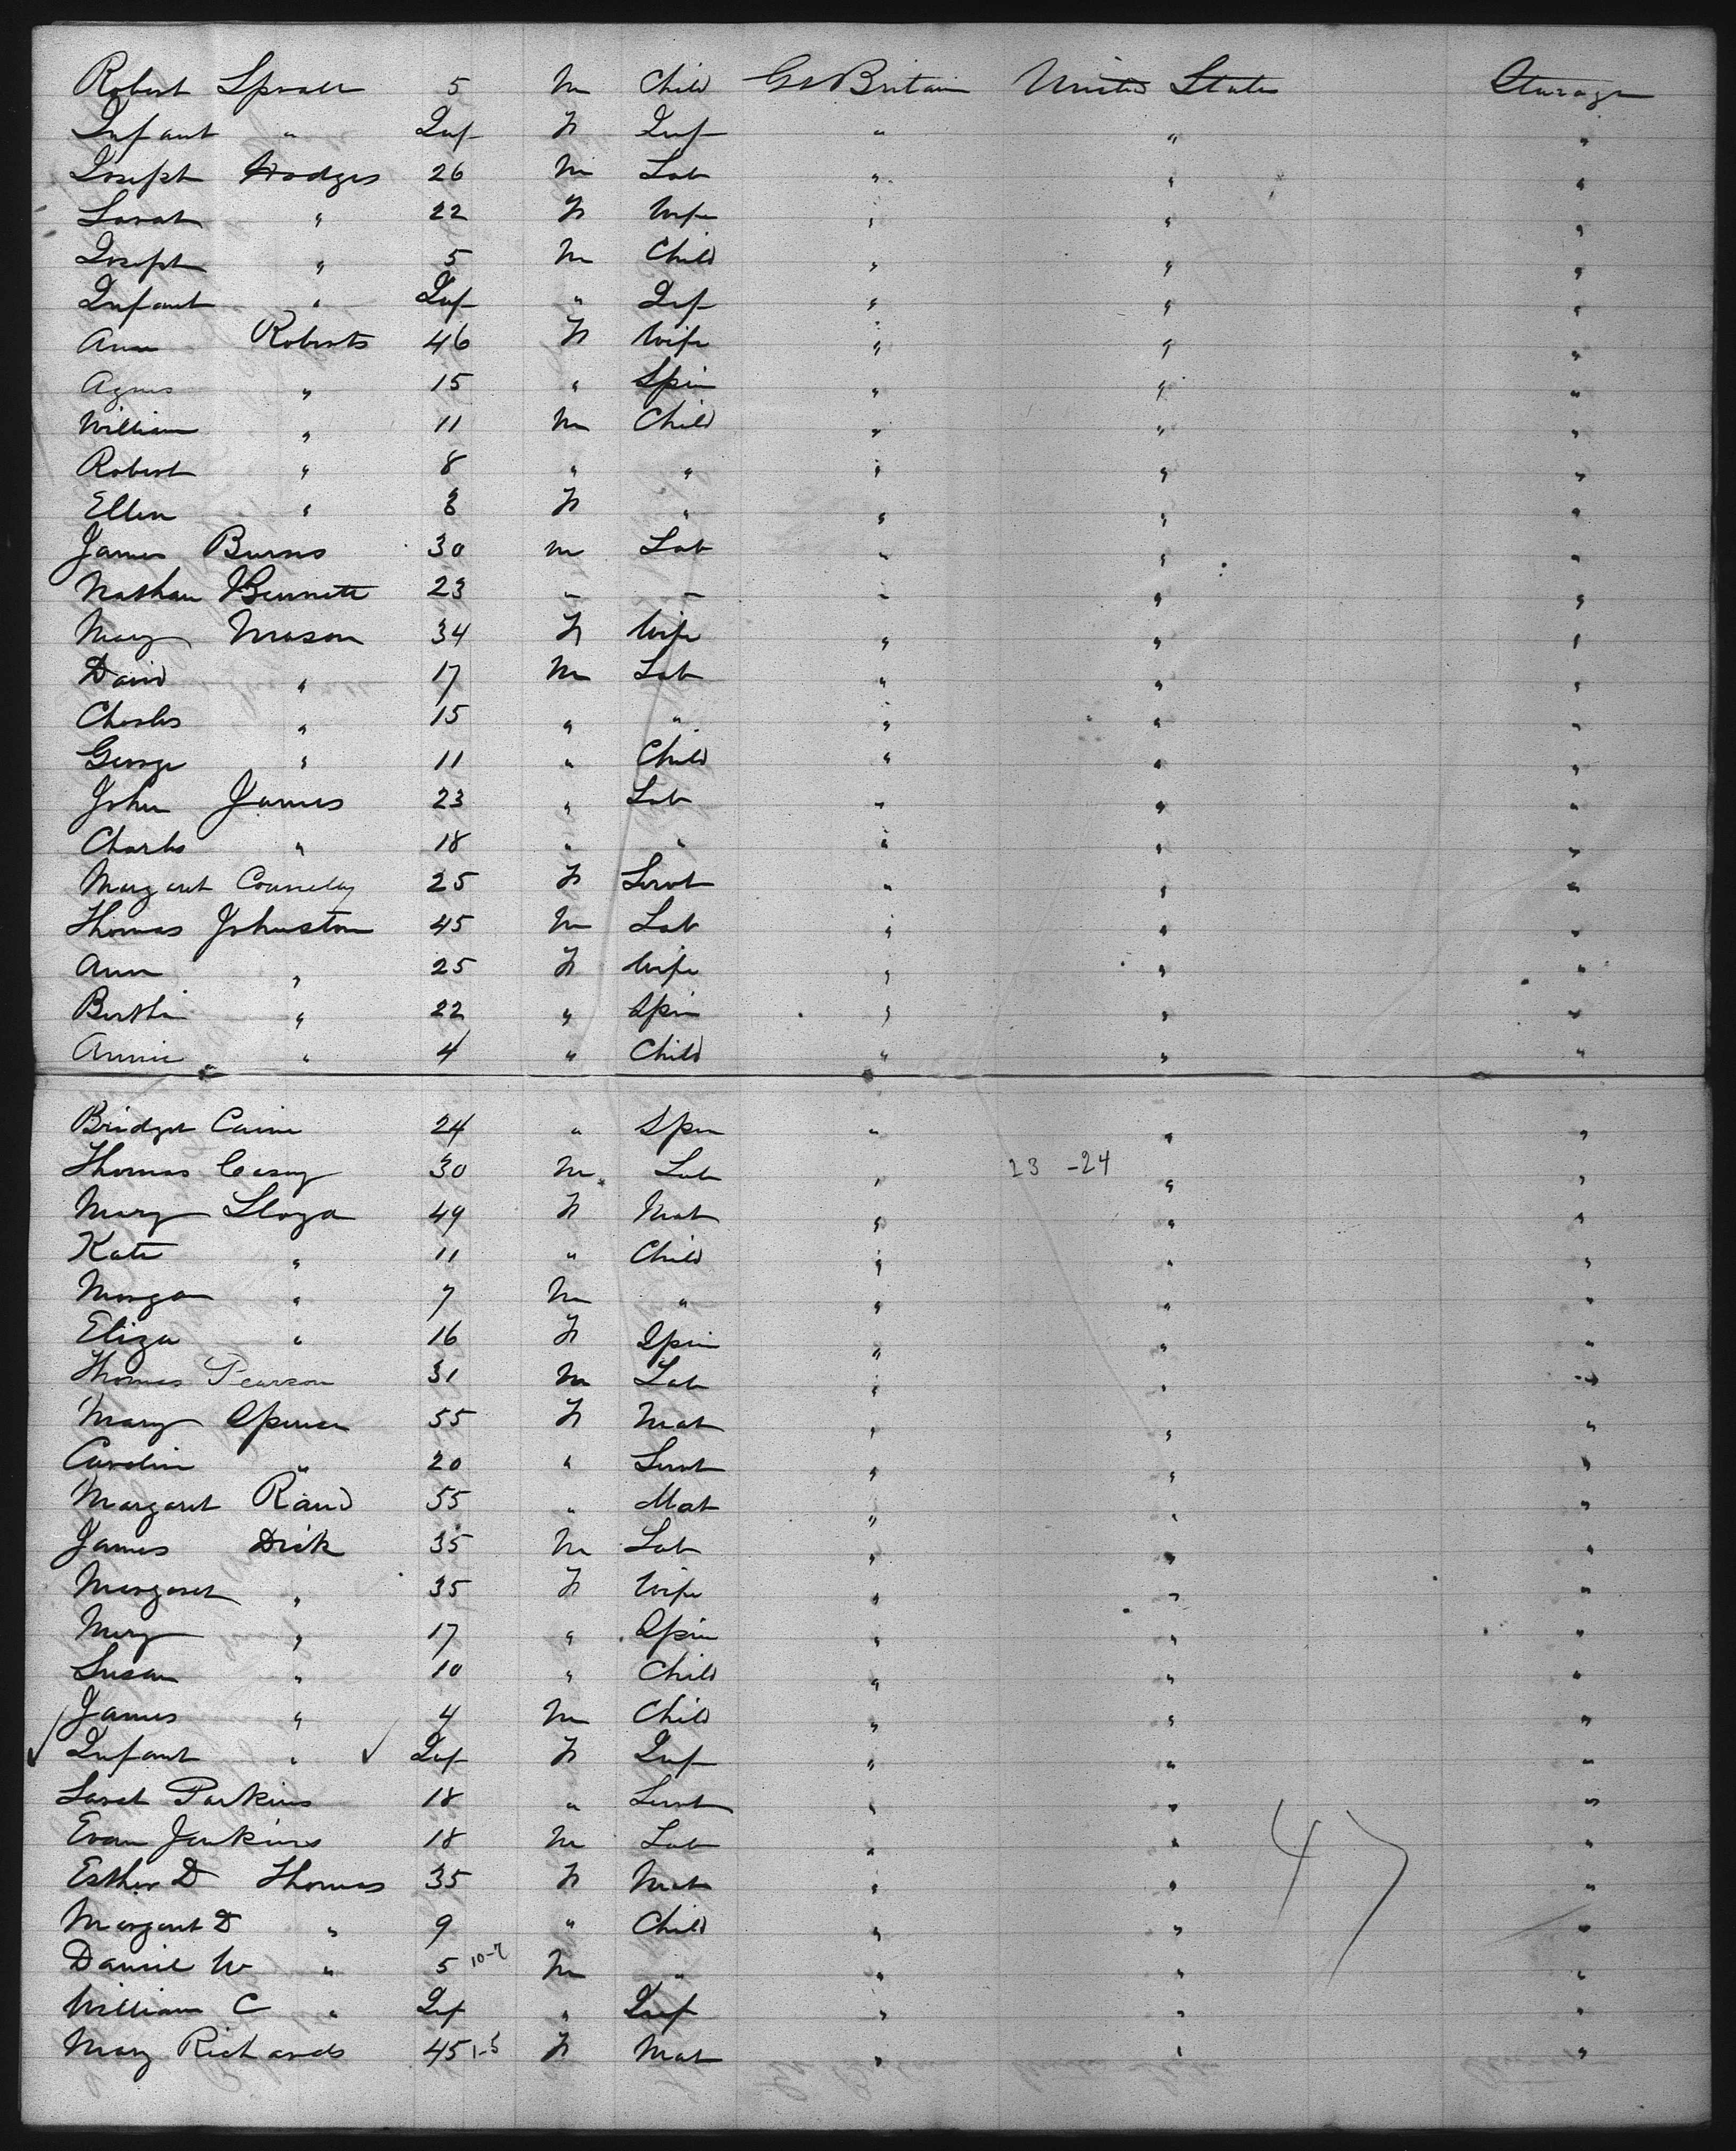 Robert Sproll 5 M Child Gt Britain United States Steerage
Infant " Inf F Inf " " "
Joseph Hodges 26 M Lab " " "
Sarah " 22 F Wife " " "
Joseph " 5 M Child " " "
Infant " Inf " Inf " " "
Ann Roberts 46 F Wife " " "
Agnes " 15 " Spin " " "
William " 11 M Child " " "
Robert " 8 " " " " "
Ellen " 8 F " " " "
James Burns 30 M Lab " " "
Nathan Bennett 23 " " " " "
Mary Mason 34 F Wife " " "
David " 17 M Lab " " "
Charles " 15 " " " " "
George " 11 " Child " " "
John James 23 " Lab " " "
Charles " 18 " " " " "
Margaret Connelly 25 F Servt " " "
Thomas Johnston 45 M Lab " " "
Ann " 25 F Wife " " "
Bertha " 22 " Spin " " "
Annie " 4 " Child " " "
Bridget Caine 24 " Spin " " "
Thomas Casey 30 M Lab " 23 -24 " "
Mary Lloyd 49 F Mat " " "
Kate " 11 " Child " " "
Morgan " 7 M " " " "
Eliza " 16 F Spin " " "
Thomas Pearson 31 M Lab " " "
Mary Spencer 55 F Mat " " "
Caroline " 20 " Servt " " "
Margaret Rand 55 " Mat " " "
James Dick 35 M Lab " " "
Margaret " 35 F Wife " " "
Mary " 17 " Spin " " "
Susan " 10 " Child " " "
James " 4 M Child " " "
Infant " Inf F Inf " " "
Sarah Parkins 18 " Servt " " "
Evan Jenkins 18 M Lab " " "
Esther D Thomas 35 F Mat " " 47 "
Margaret D " 9 " Child " " "
Daniel W " 5 10-7 M " " " "
William C " Inf " Inf " " "
Mary Richards 45 1-3 F Mat " " "